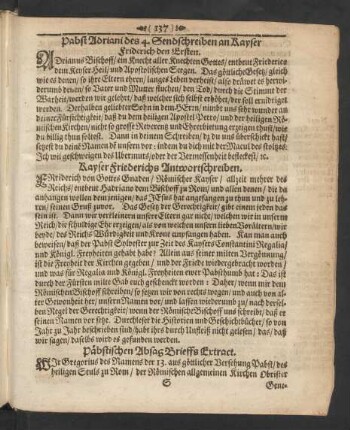 ( 137 )
Pabst Adriani des 4. Sendschreiben an Kayser
Friderich den Ersten.
ADrianus Bischoff / ein Knecht aller Knechten Gottes / entbeut Friederico
dem Keyser Heil / und Apostolischen Seegen. Das göttliche Gesetz / gleich
wie es denen / so ihre Eltern ehren / langes Leben verheist / also dräwet es herwi-
derumb denen / so Vater und Mutter fluchen / den Tod / durch die Stimme der
Warheit / werden wir gelehrt / daß welcher sich selbst erhöhet / der soll erniedriget
werden. Derhalben geliebter Sohn in dem HErrn / nimbt uns sehr wunder an
deiner Fürsichtigkeit / daß du dem heiligen Apostel Petro / und der heiligen Römi-
schen Kirchen / nicht so grosse Reverentz und Ehrerbietung erzeigen thust / wie
du billig thun soltest. Dann in deinen Schreiben / so du an uns überschickt hast /
setzest du deine Namen dem unsern vor : indem du dich mit der Macul des stoltzes /
Ich wil geschweigen des Ubermuts / oder der Vermessenheit befleckest / ꝛc.
Kayser Friederichs Antwortschreiben.
FRiderich von Gottes Gnaden / Römischer Kayser / allzeit mehrer des
Reichs / entbeut Hadriano dem Bischoff zu Rom / und allen denen / die da
anhangen wollen dem jenigen / das JEsus hat angefangen zu thun und zu leh-
ren / seinen Gruß zuvor. Das Gesetz der Gerechtigkeit / gibt einem jeden das
sein ist. Dann wir verkleinern unsere Eltern gar nicht / welchen wir in unserm
Reich / die schuldige Ehr erzeigen / als von welchen unsern lieben Voreltern / wir
beyde / des Reichs Würdigkeit und Kron empfangen haben. Kan man auch
beweisen / daß der Pabst Sylvester zur Zeit des Kaysers Constantini Regalia /
und Königl. Freyheiten gehabt habe? Allein aus seiner milten Vergönnung /
ist die Freyheit der Kirchen gegeben / und der Friede wiedergebracht worden /
und was für Regalia und Königl. Freyheiten ewer Pabsthumb hat : Das ist
durch der Fürsten milte Gab euch geschenckt worden : Daher / wenn wir dem
Römischen Bischoff schreiben / so setzen wir von rechts wegen / und auch von al-
ter Gewonheit her / unsern Namen vor / und lassen wiederumb zu / nach dersel-
ben Regel der Gerechtigkeit / wenn der Römische Bischoff uns schreibt / daß er
seinen Namen vor setze. Durchleset die Historien und Geschichtbücher / so von
Jahr zu Jahr beschrieben sind / habt ihrs durch Unfleiß nicht gelesen / das / daß
wir sagen / daselbs wird es gefunden werden.
Päbstischen Absag Brieffs Extract.
WIr Gregorius des Namens der 13. aus göttlicher Versehung Pabst / des
heiligen Stuls zu Rom / der Römischen allgemeinen Kirchen Obrister
S
Gene-